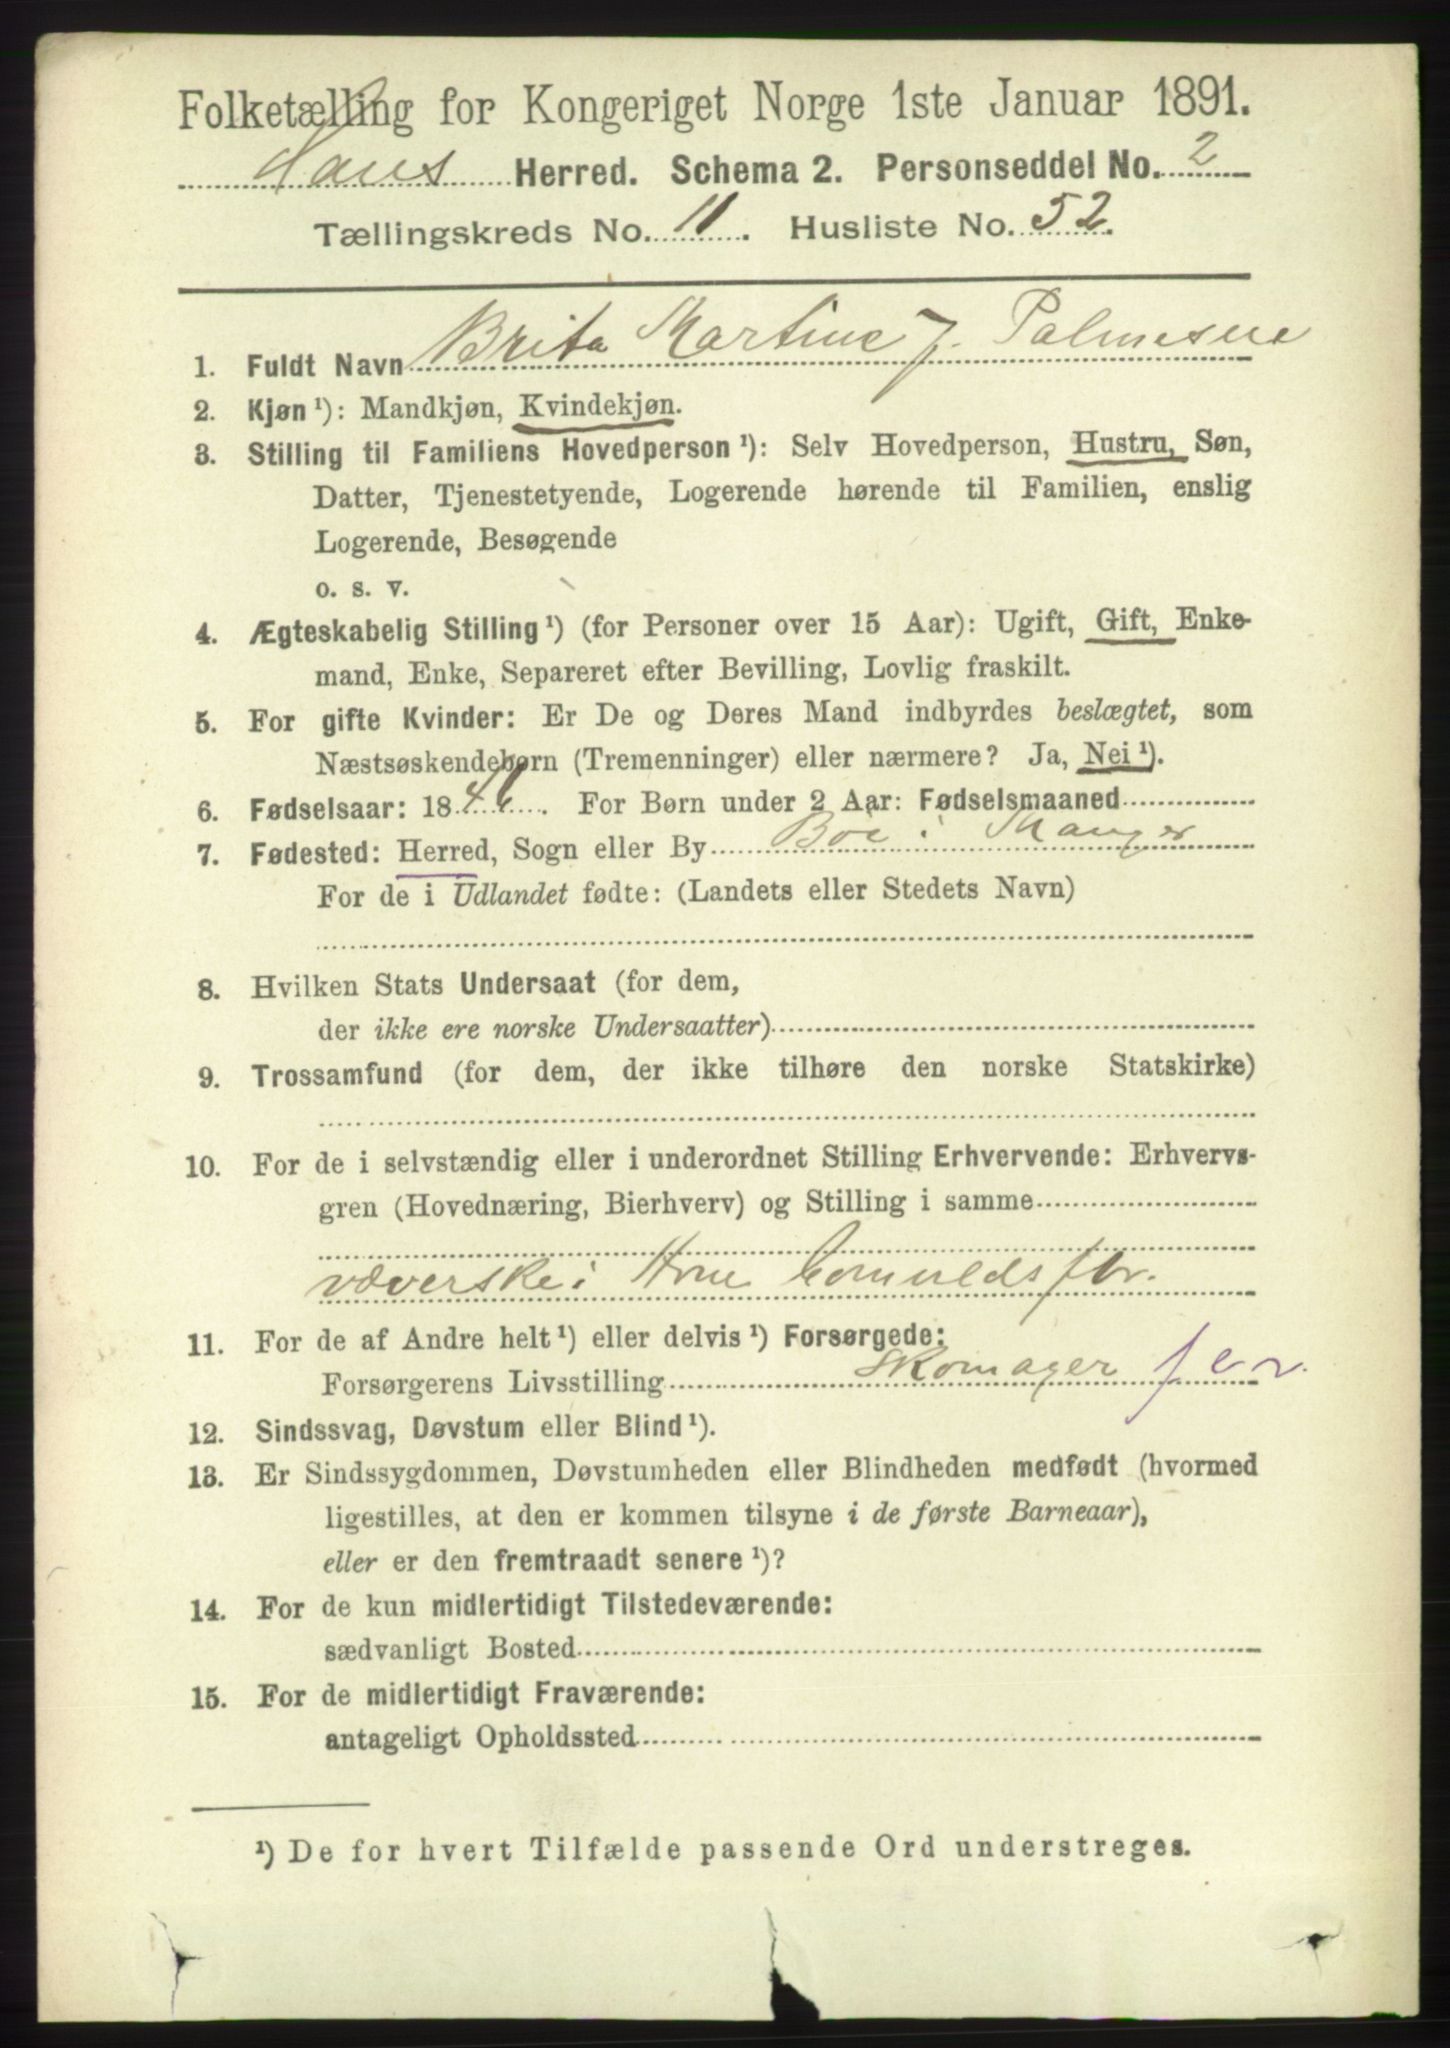 Folketælling for Kongeriget Norge 1ste Januar 1891.
Haus Herred. Schema 2. Personseddel No. 2
Tællingskreds No. 11. Husliste No. 52.
1. Fuldt Navn Brita Martine J. Palmesen
2. Kjøn ¹): Mandkjøn, Kvindekjøn.
3. Stilling til Familiens Hovedperson ¹): Selv Hovedperson, Hustru, Søn,
Datter, Tjenestetyende, Logerende hørende til Familien, enslig
Logerende, Besøgende
o. s. v.
4. Ægteskabelig Stilling ¹) (for Personer over 15 Aar): Ugift, Gift, Enke-
mand, Enke, Separeret efter Bevilling, Lovlig fraskilt.
5. For gifte Kvinder: Er De og Deres Mand indbyrdes beslægtet, som
Næstsøskendebørn (Tremenninger) eller nærmere? Ja, Nei ¹).
6. Fødselsaar: 1846. For Børn under 2 Aar: Fødselsmaaned
7. Fødested: Herred, Sogn eller By Boe i Manger
For de i Udlandet fødte: (Landets eller Stedets Navn)
8. Hvilken Stats Undersaat (for dem,
der ikke ere norske Undersaatter)
9. Trossamfund (for dem, der ikke tilhøre den norske Statskirke)
10. For de i selvstændig eller i underordnet Stilling Erhvervende: Erhvervs-
gren (Hovednæring, Bierhverv) og Stilling i samme
væverske i
11. For de af Andre helt ¹) eller delvis ¹) Forsørgede:
Forsørgerens Livsstilling Skomager
12. Sindssvag, Døvstum eller Blind ¹).
13. Er Sindssygdommen, Døvstumheden eller Blindheden medfødt (hvormed
ligestilles, at den er kommen tilsyne i de første Barneaar),
eller er den fremtraadt senere ¹)?
14. For de kun midlertidigt Tilstedeværende:
sædvanligt Bosted
15. For de midlertidigt Fraværende:
antageligt Opholdssted
¹) De for hvert Tilfælde passende Ord understreges.